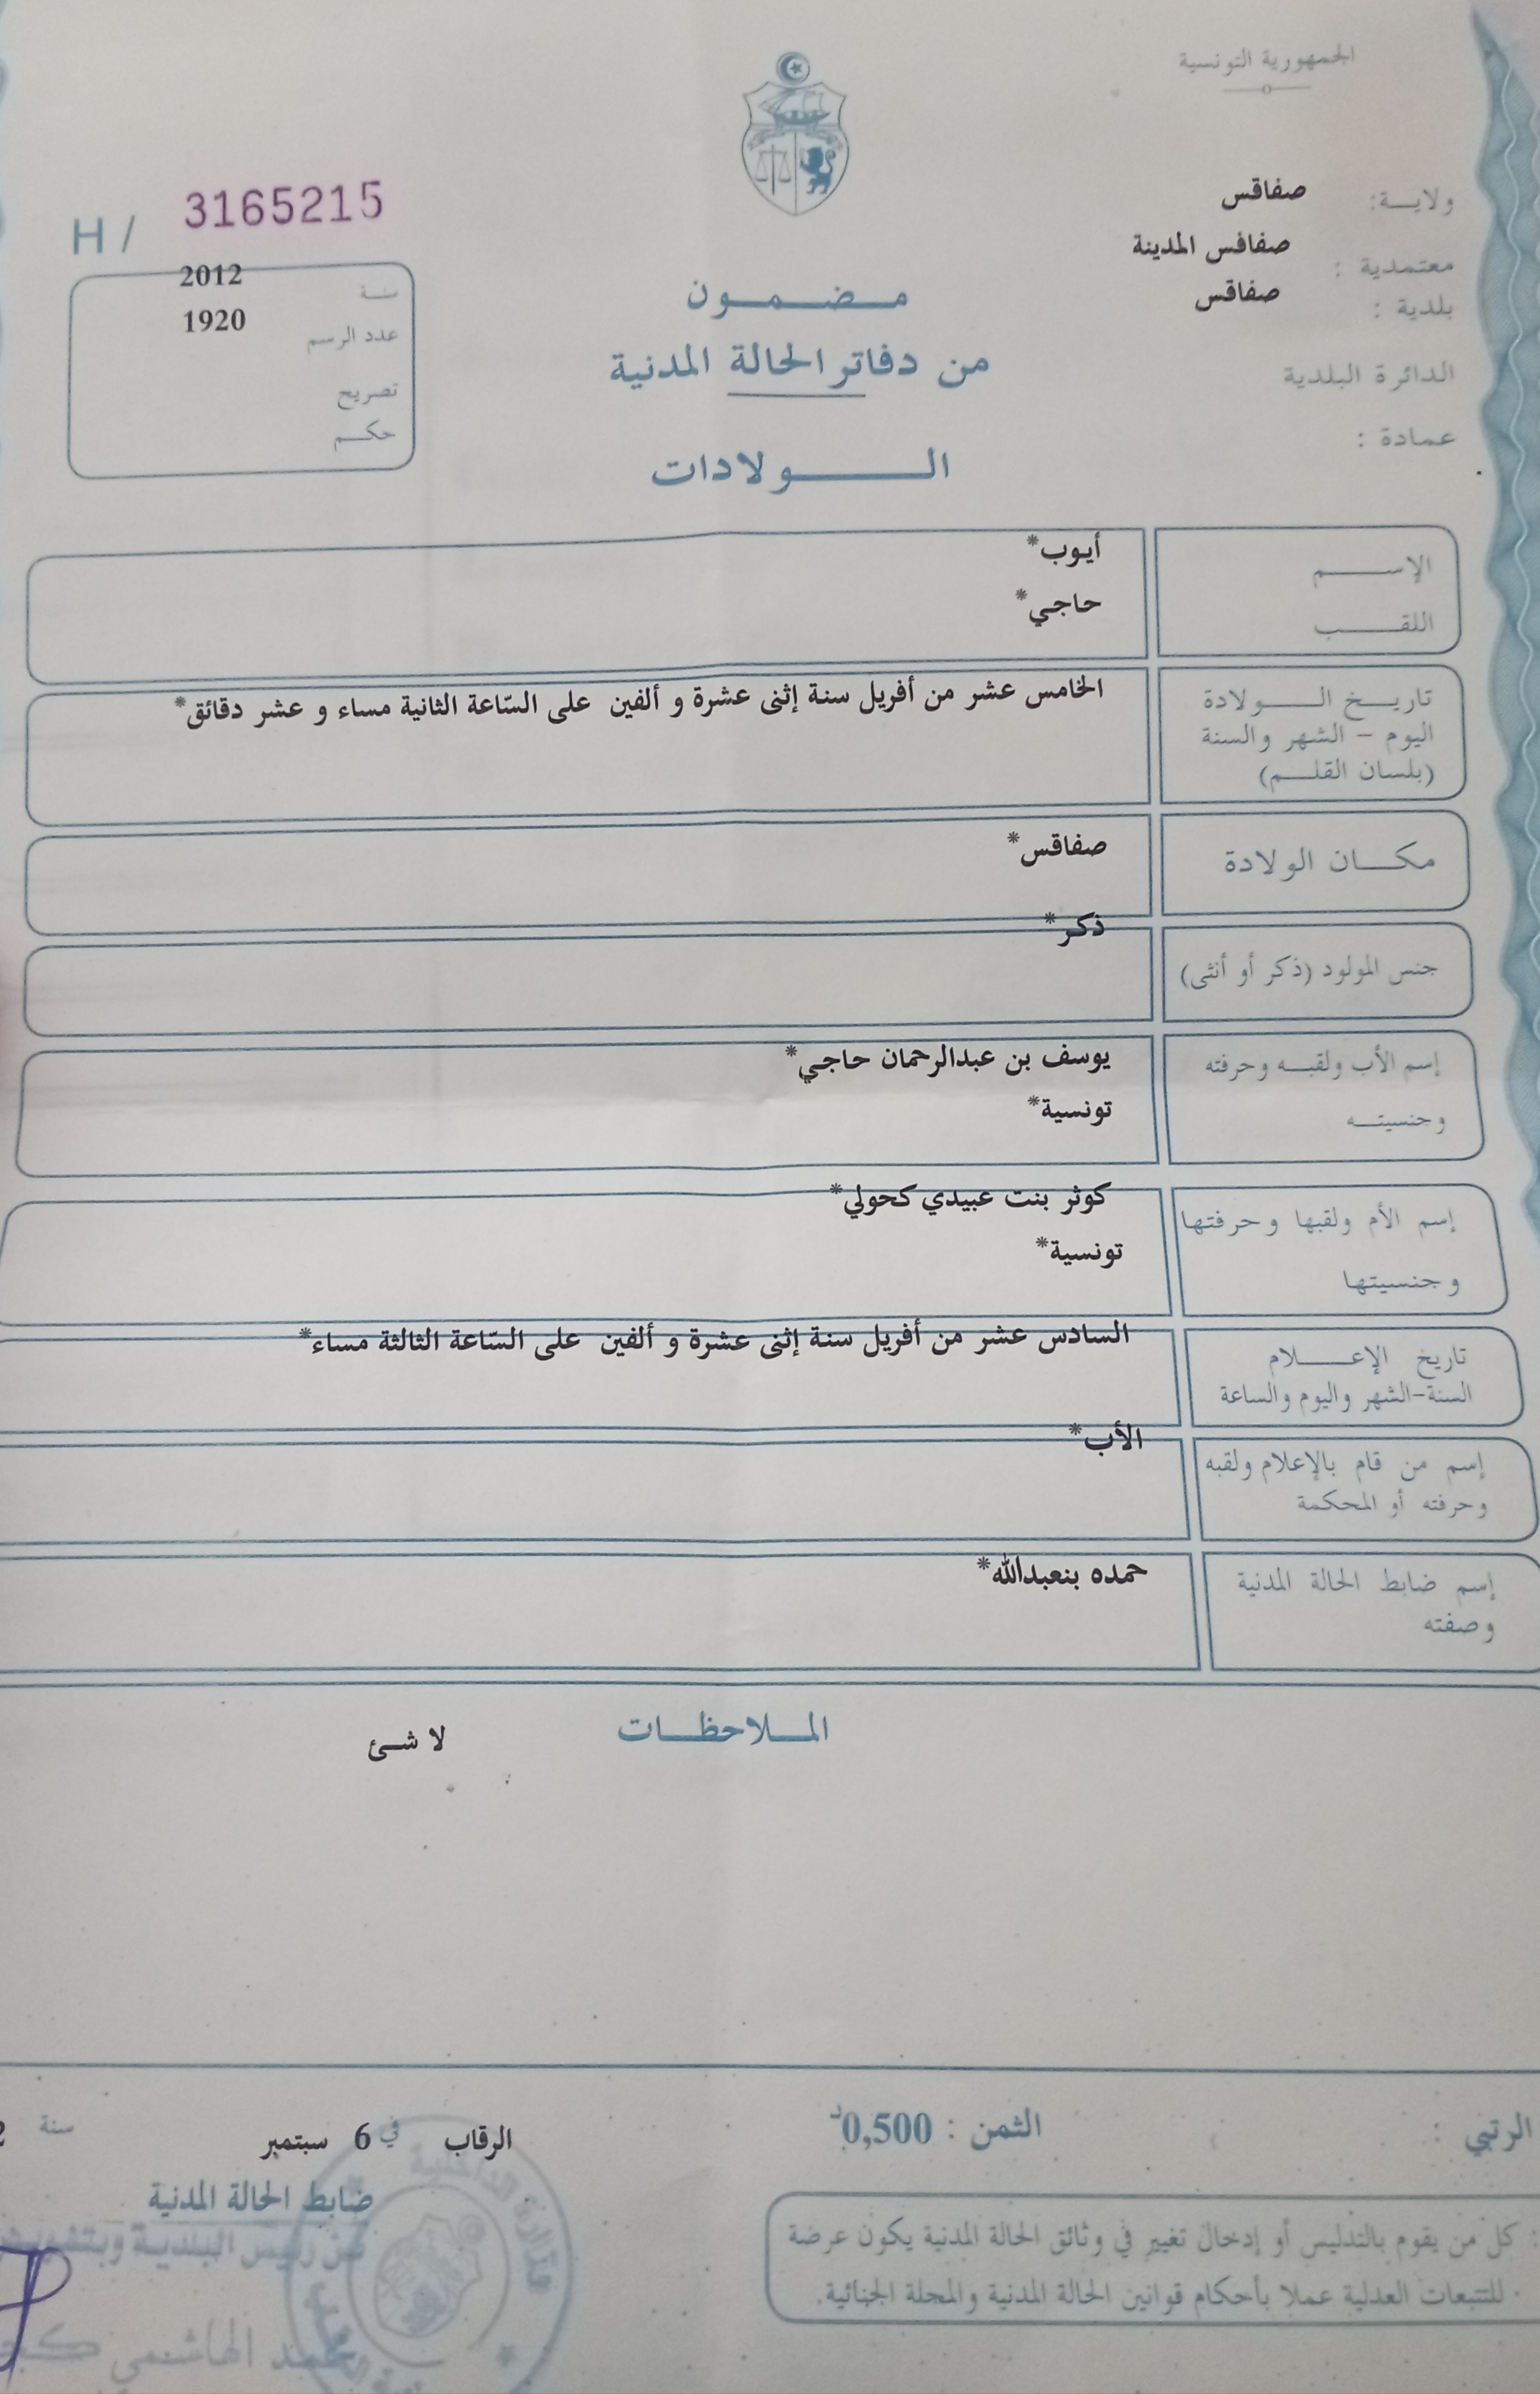 الجمهورية التونسية
ولايـــة: صفاقس
معتمدية : صفافس المدينة
بلدية : صفاقس
الدائرة البلدية
عمادة :
H / 3165215
سنة 2012
عدد الرسم 1920
تصريح
حكم
مضمون
من دفاتر الحالة المدنية
الولادات
الإسم أيوب*
اللقب حاجي*
تاريخ الولادة
اليوم - الشهر والسنة
(بلسان القلم)
الخامس عشر من أفريل سنة إثنى عشرة و ألفين على السّاعة الثانية مساء و عشر دقائق*
مكان الولادة صفاقس*
جنس المولود (ذكر أو أنثى) ذكر*
إسم الأب ولقبه وحرفته يوسف بن عبدالرحمان حاجي*
وجنسيته تونسية*
إسم الأم ولقبها وحرفتها كوثر بنت عبيدي كحولي*
وجنسيتها تونسية*
تاريخ الإعلام
السنة-الشهر واليوم والساعة
السادس عشر من أفريل سنة إثنى عشرة و ألفين على السّاعة الثالثة مساء*
إسم من قام بالإعلام ولقبه
وحرفته أو المحكمة
الأب*
إسم ضابط الحالة المدنية
وصفته
حمده بنعبدالله*
الملاحظات
لا شئ
الرتبي :
الثمن : 0,500د
الرقاب في 6 سبتمبر سنة
ضابط الحالة المدنية
عن رئيس البلدية
: كل من يقوم بالتدليس أو إدخال تغيير في وثائق الحالة المدنية يكون عرضة
للتتبعات العدلية عملا بأحكام قوانين الحالة المدنية والمجلة الجنائية.
وزارة الداخلية
محمد الهاشمي